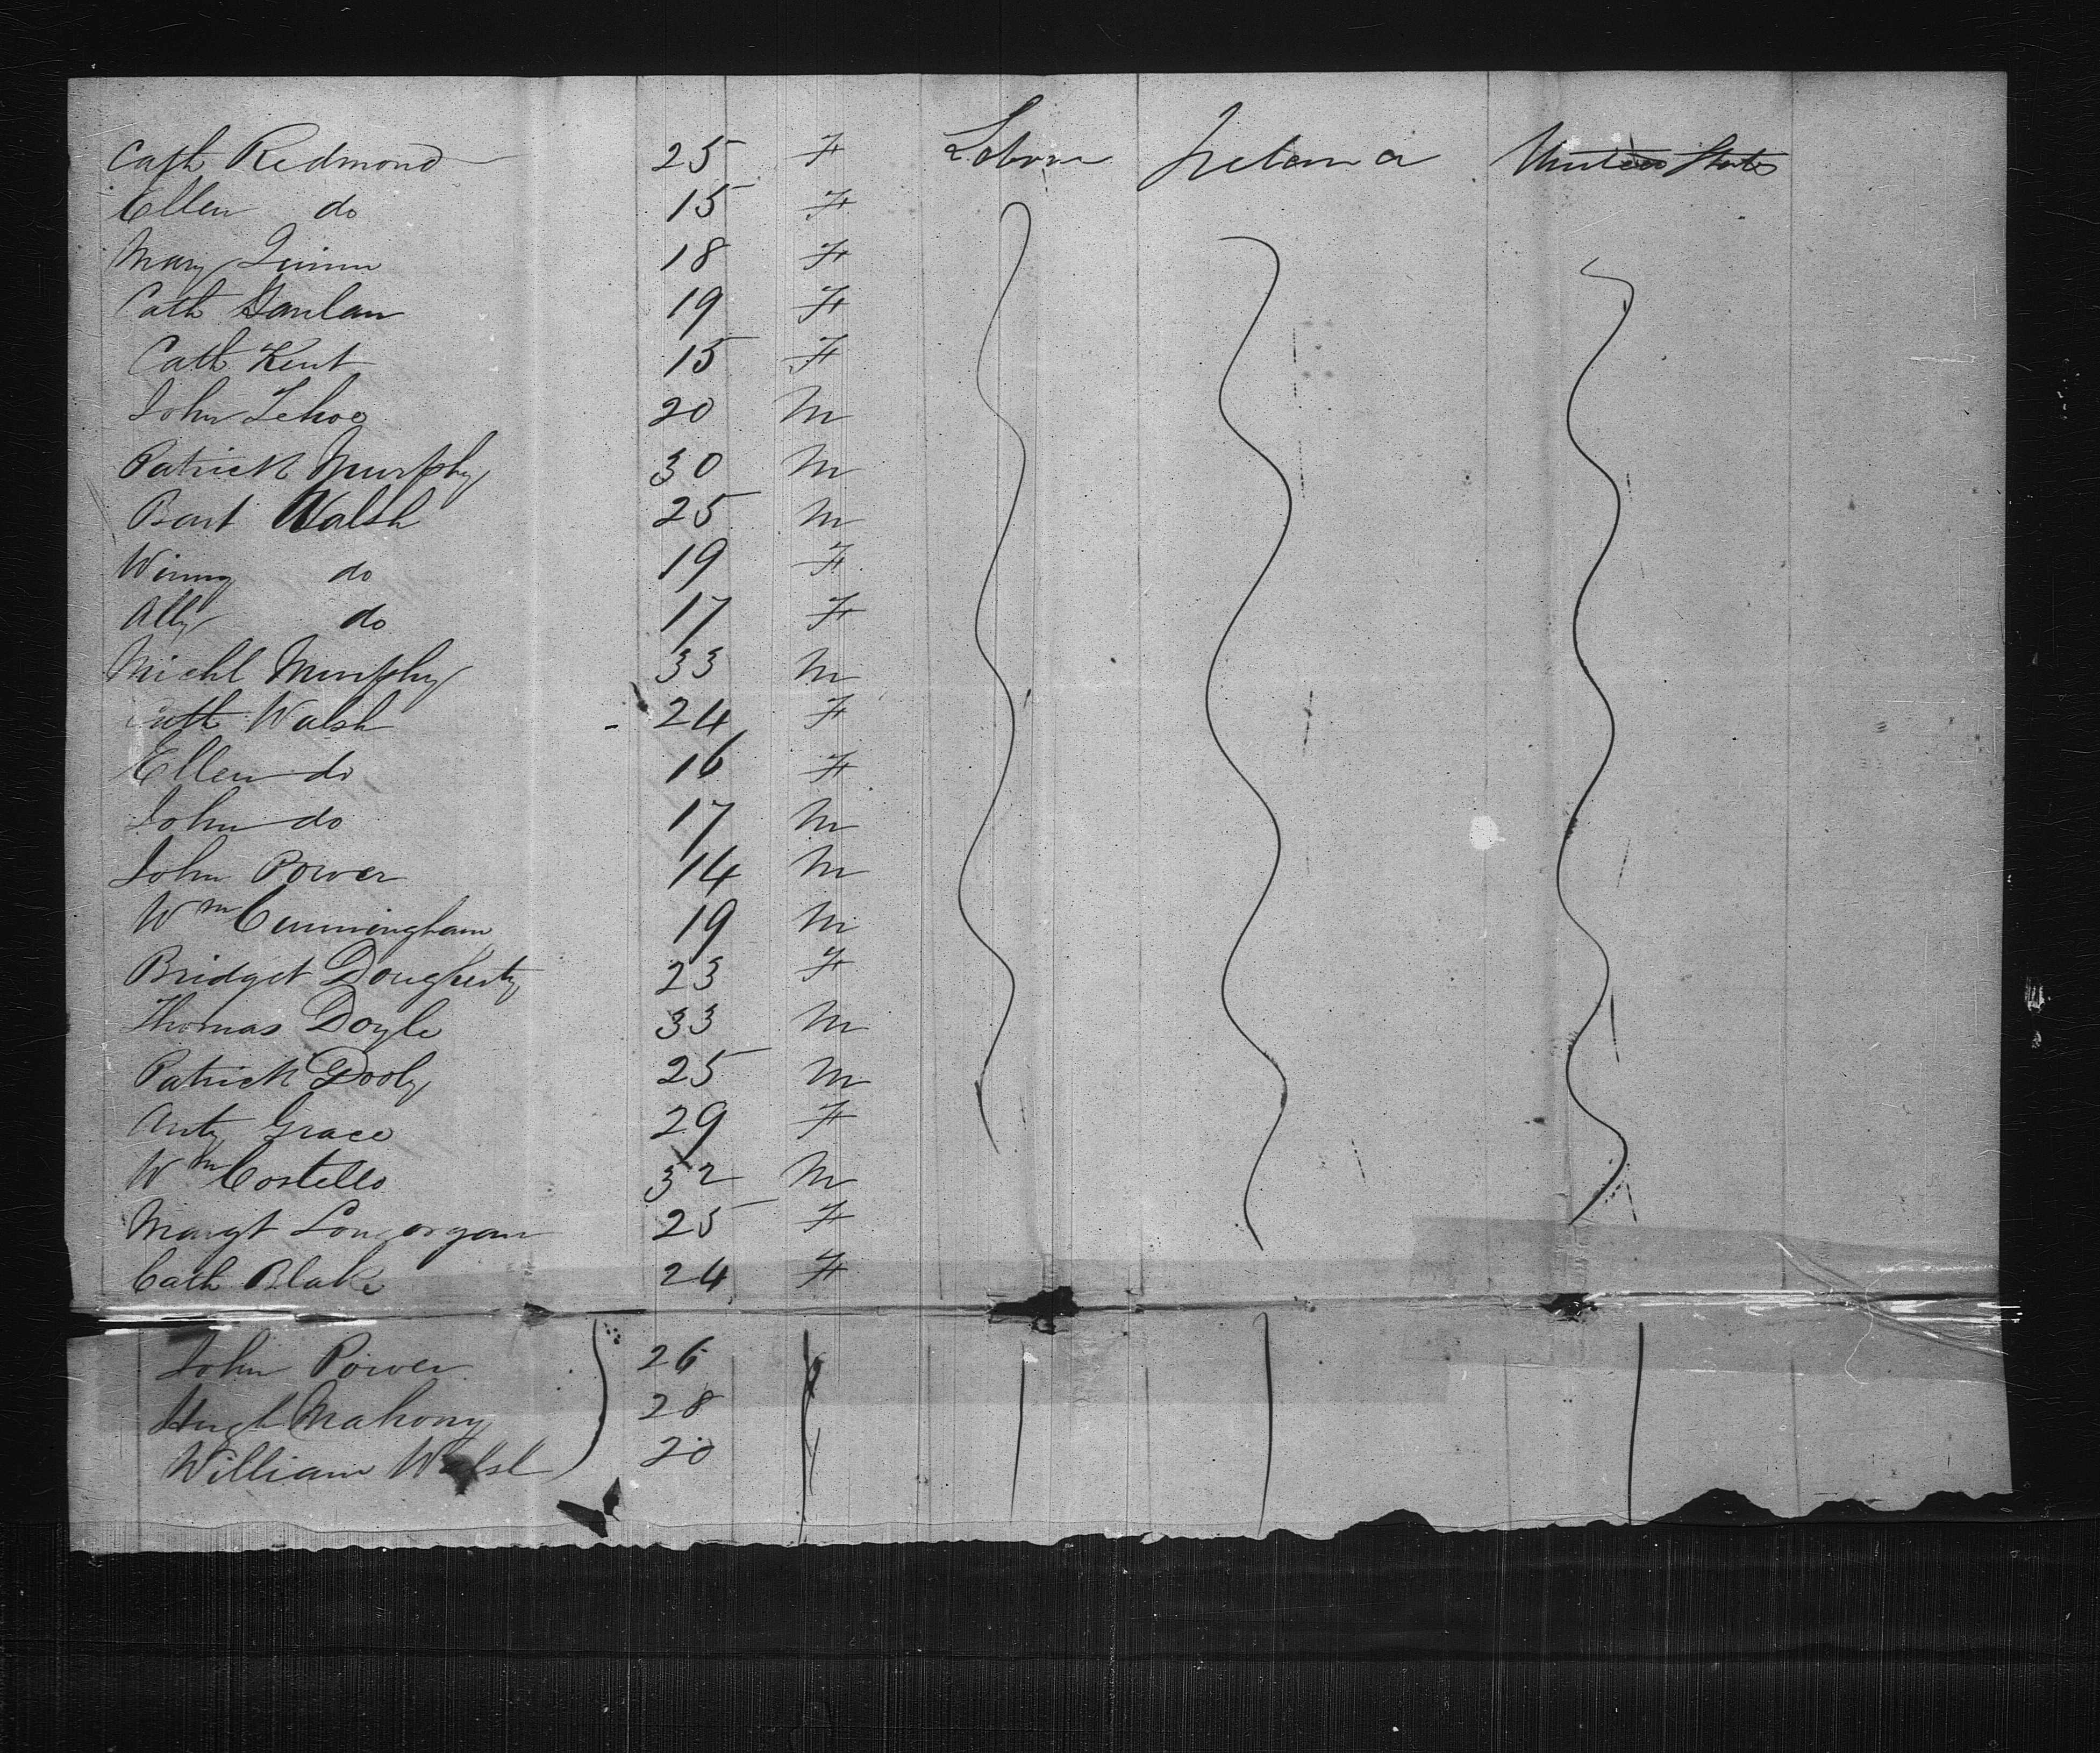 Cath Redmond 25 F Labour Ireland United States
Ellen do 15 F
Mary Quinn 18 F
Cath 19 F
Cath Kent 15 F
John Kehoe 20 M
Patrick Murphy 30 M
Bart Walsh 25 M
Winny do 19 F
Ally do 17 F
Michl Murphy 33 M
Cath Walsh 24 F
Ellen do 16 F
John do 17 M
John Power 14 M
Wm Cunningham 19 M
Bridget Dougherty 23 F
Thomas Doyle 33 M
Patrick Dooly 25 M
Anty Grace 29 F
Wm Costello 32 M
Margt Longorgan 25 F
Cath Blake 24 F
John Power 26
Hugh Mahony 28
William Walsh 20